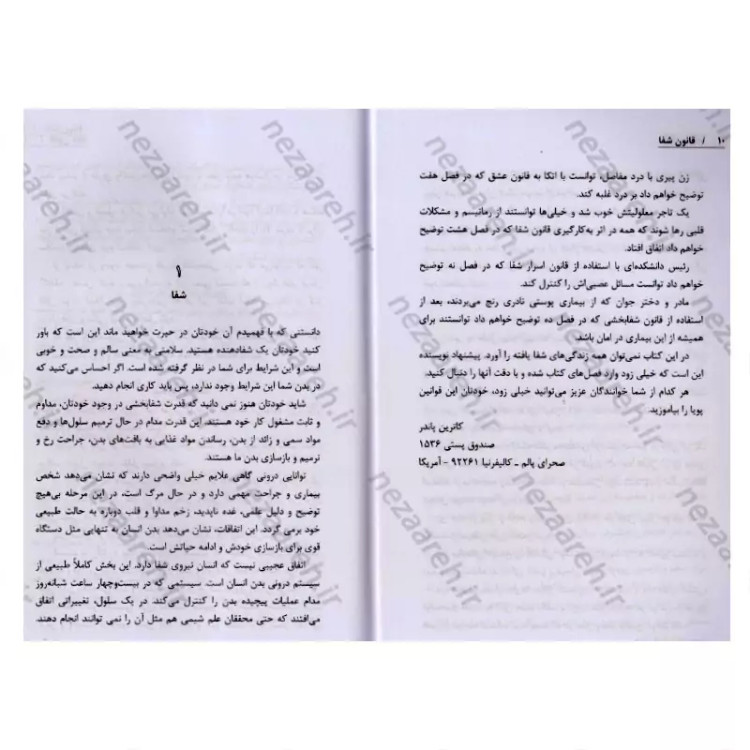 ۱۰ / قانون شفا
زن پیری با درد مفاصل، توانست با اتکا به قانون عشق که در فصل هفت
توضیح خواهم داد بر درد غلبه کند.
یک تاجر معلولیتش خوب شد و خیلی‌ها توانستند از رماتیسم و مشکلات
قلبی رها شوند که همه در اثر به‌کارگیری قانون شفا که در فصل هشت توضیح
خواهم داد اتفاق افتاد.
رئیس دانشکده‌ای با استفاده از قانون اسرار شفا که در فصل نه توضیح
خواهم داد توانست مسائل عصبی‌اش را کنترل کند.
مادر و دختر جوان که از بیماری پوستی نادری رنج می‌بردند، بعد از
استفاده از قانون شفابخشی که در فصل ده توضیح خواهم داد توانستند برای
همیشه از این بیماری در امان باشد.
در این کتاب نمی‌توان همه زندگی‌های شفا یافته را آورد. پیشنهاد نویسنده
این است که خیلی زود وارد فصل‌های کتاب شده و با دقت آنها را دنبال کنید.
هر کدام از شما خوانندگان عزیز می‌توانید خیلی زود، خودتان این قوانین
پویا را بیاموزید.
کاترین پاندر
صندوق پستی ۱۵۳۶
صحرای پالم ـ کالیفرنیا ۹۲۲۶۱ - آمریکا
۱
شفا
دانستنی که با فهمیدم آن خودتان در حیرت خواهید ماند این است که باور
کنید خودتان یک شفادهنده هستید. سلامتی به معنی سالم و صحت و خوبی
است و این شرایط برای شما در نظر گرفته شده است. اگر احساس می‌کنید که
در بدن شما این شرایط وجود ندارد، پس باید کاری انجام دهید.
شاید خودتان هنوز نمی دانید که قدرت شفابخشی در وجود خودتان، مداوم
و ثابت مشغول کار خود هستند. این قدرت مدام در حال ترمیم سلول‌ها و دفع
مواد سمی و زائد از بدن، رساندن مواد غذایی به بافت‌های بدن، جراحت رخ و
ترمیم و بازسازی بدن ما هستند.
توانایی درونی گاهی علایم خیلی واضحی دارند که نشان می‌دهد شخص
بیماری و جراحت مهمی دارد و در حال مرگ است، در این مرحله بی‌هیچ
توضیح و دلیل علمی، غده ناپدید، زخم مداوا و قلب دوباره به حالت طبیعی
خود برمی گردد. این اتفاقات، نشان می‌دهد بدن انسان به تنهایی مثل دستگاه
قوی برای بازسازی خودش و ادامه حیاتش است.
اتفاق عجیبی نیست که انسان نیروی شفا دارد. این بخش کاملاً طبیعی از
سیستم درونی بدن انسان است. سیستمی که در بیست‌وچهار ساعت شبانه‌روز
مدام عملیات پیچیده بدن را کنترل می‌کند. در یک سلول، تغییراتی اتفاق
می‌افتند که حتی محققان علم شیمی هم مثل آن را نمی توانند انجام دهند.
nezaareh.ir
nezaareh.ir
nezaareh.ir
nezaareh.ir
nezaareh.ir
nezaareh.ir
nezaareh.ir
nezaareh.ir